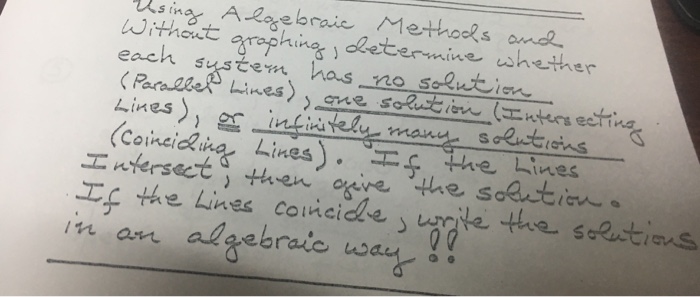 Using Algebraic Methods and
Without graphing, determine whether
each system has no solution
(Parallel Lines), one solution (Intersecting
Lines), or infinitely many solutions
(Coinciding Lines). If the Lines
Intersect, then give the solution.
If the Lines coincide, write the solutions
in an algebraic way!!